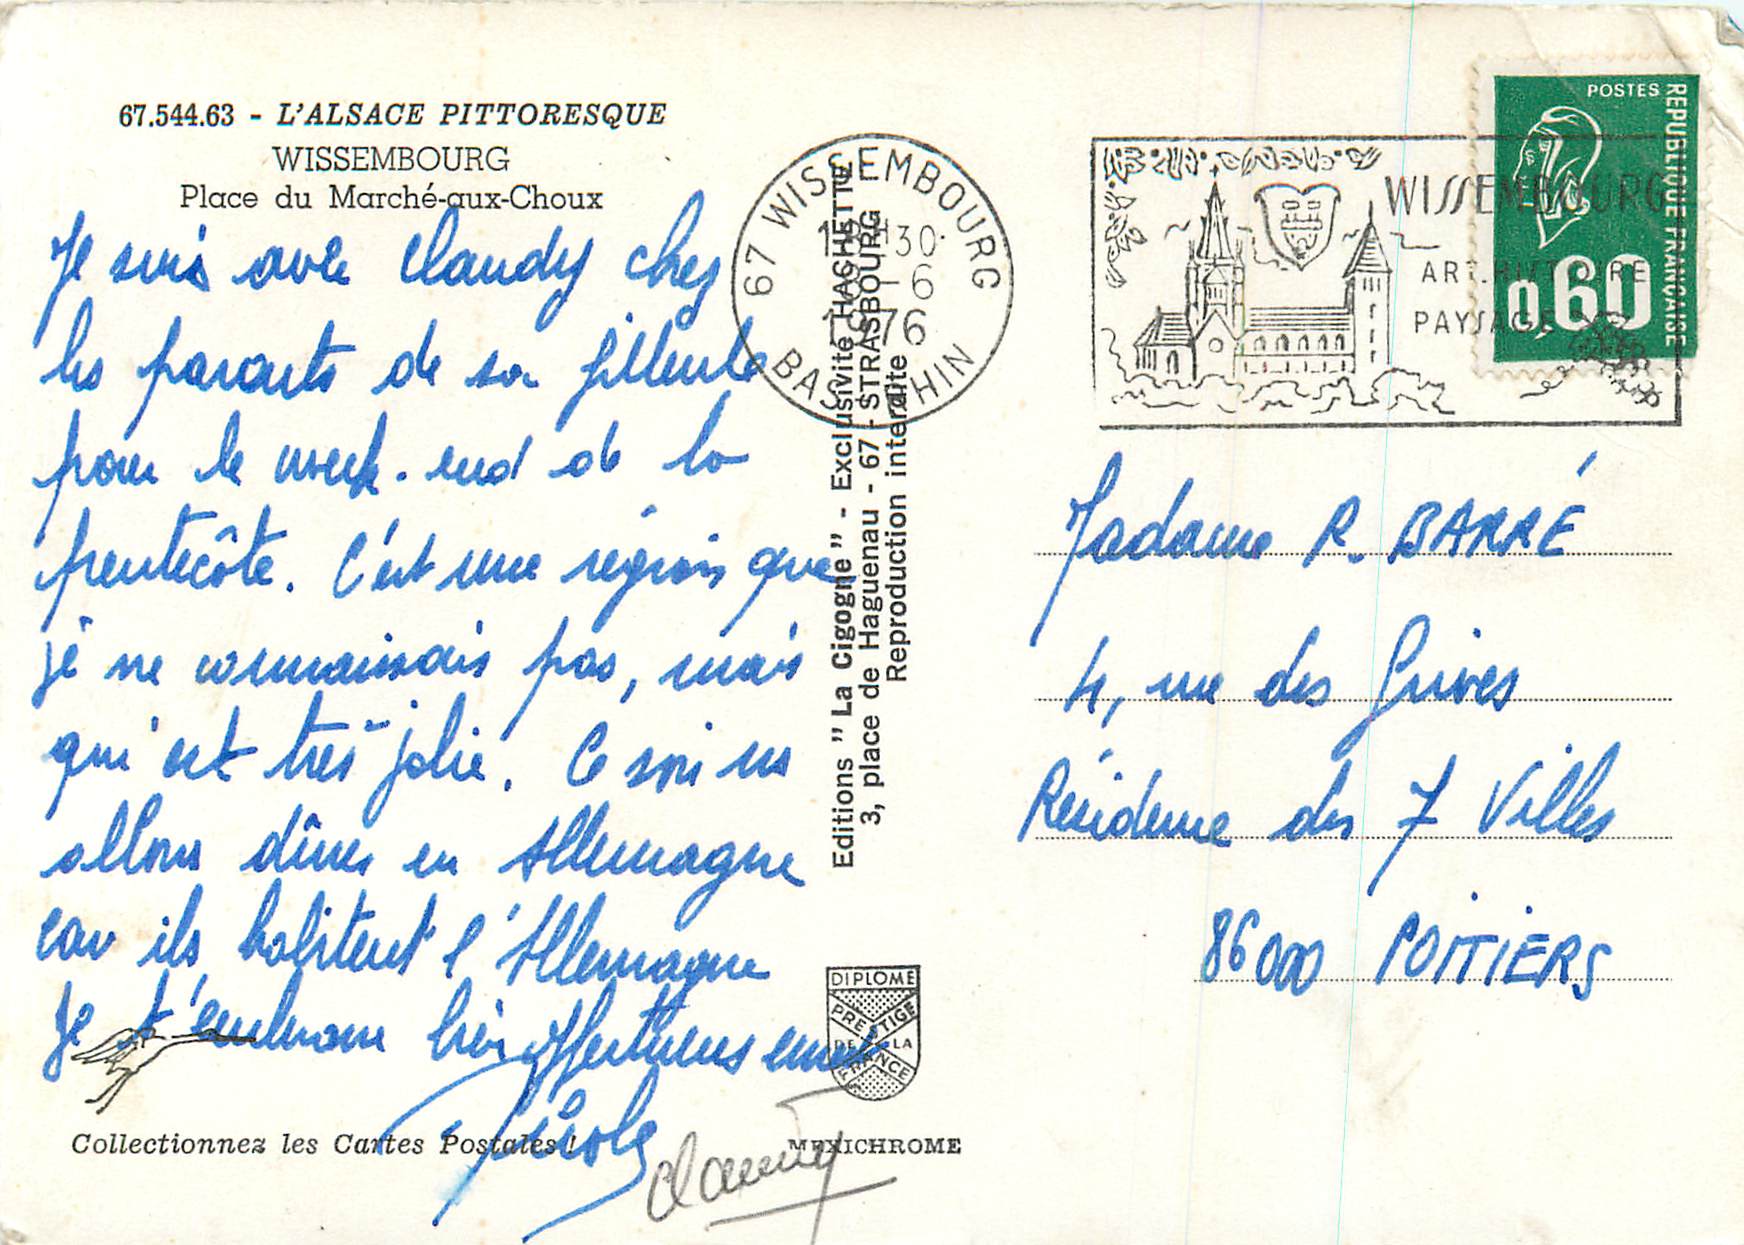 67.544.63 - L'ALSACE PITTORESQUE
WISSEMBOURG
Place du Marché-aux-Choux
Je suis avec Claudy chez
les parents de sa filleule
pour le week-end de la
pentecôte. C'est une région que
je ne connaissais pas, mais
qui est très jolie. Ce soir ns
allons dîner en Allemagne
car ils habitent l'Allemagne
Je t'embrasse bien affectueusement
Nicole
Claudy
Collectionnez les Cartes Postales !
MEXICHROME
DIPLOME
PRESTIGE
DE LA
FRANCE
Editions "La Cigogne" - Exclusivité HACHETTE
3, place de Haguenau - 67 - STRASBOURG
Reproduction interdite
67 WISSEMBOURG
18H30
1 6
1976
BAS RHIN
WISSEMBOURG
ART. HISTOIRE
PAYSAGE
POSTES
REPUBLIQUE FRANÇAISE
0,60
Madame R. BARRÉ
4, rue des Grives
Résidence des 7 Villes
86000 POITIERS